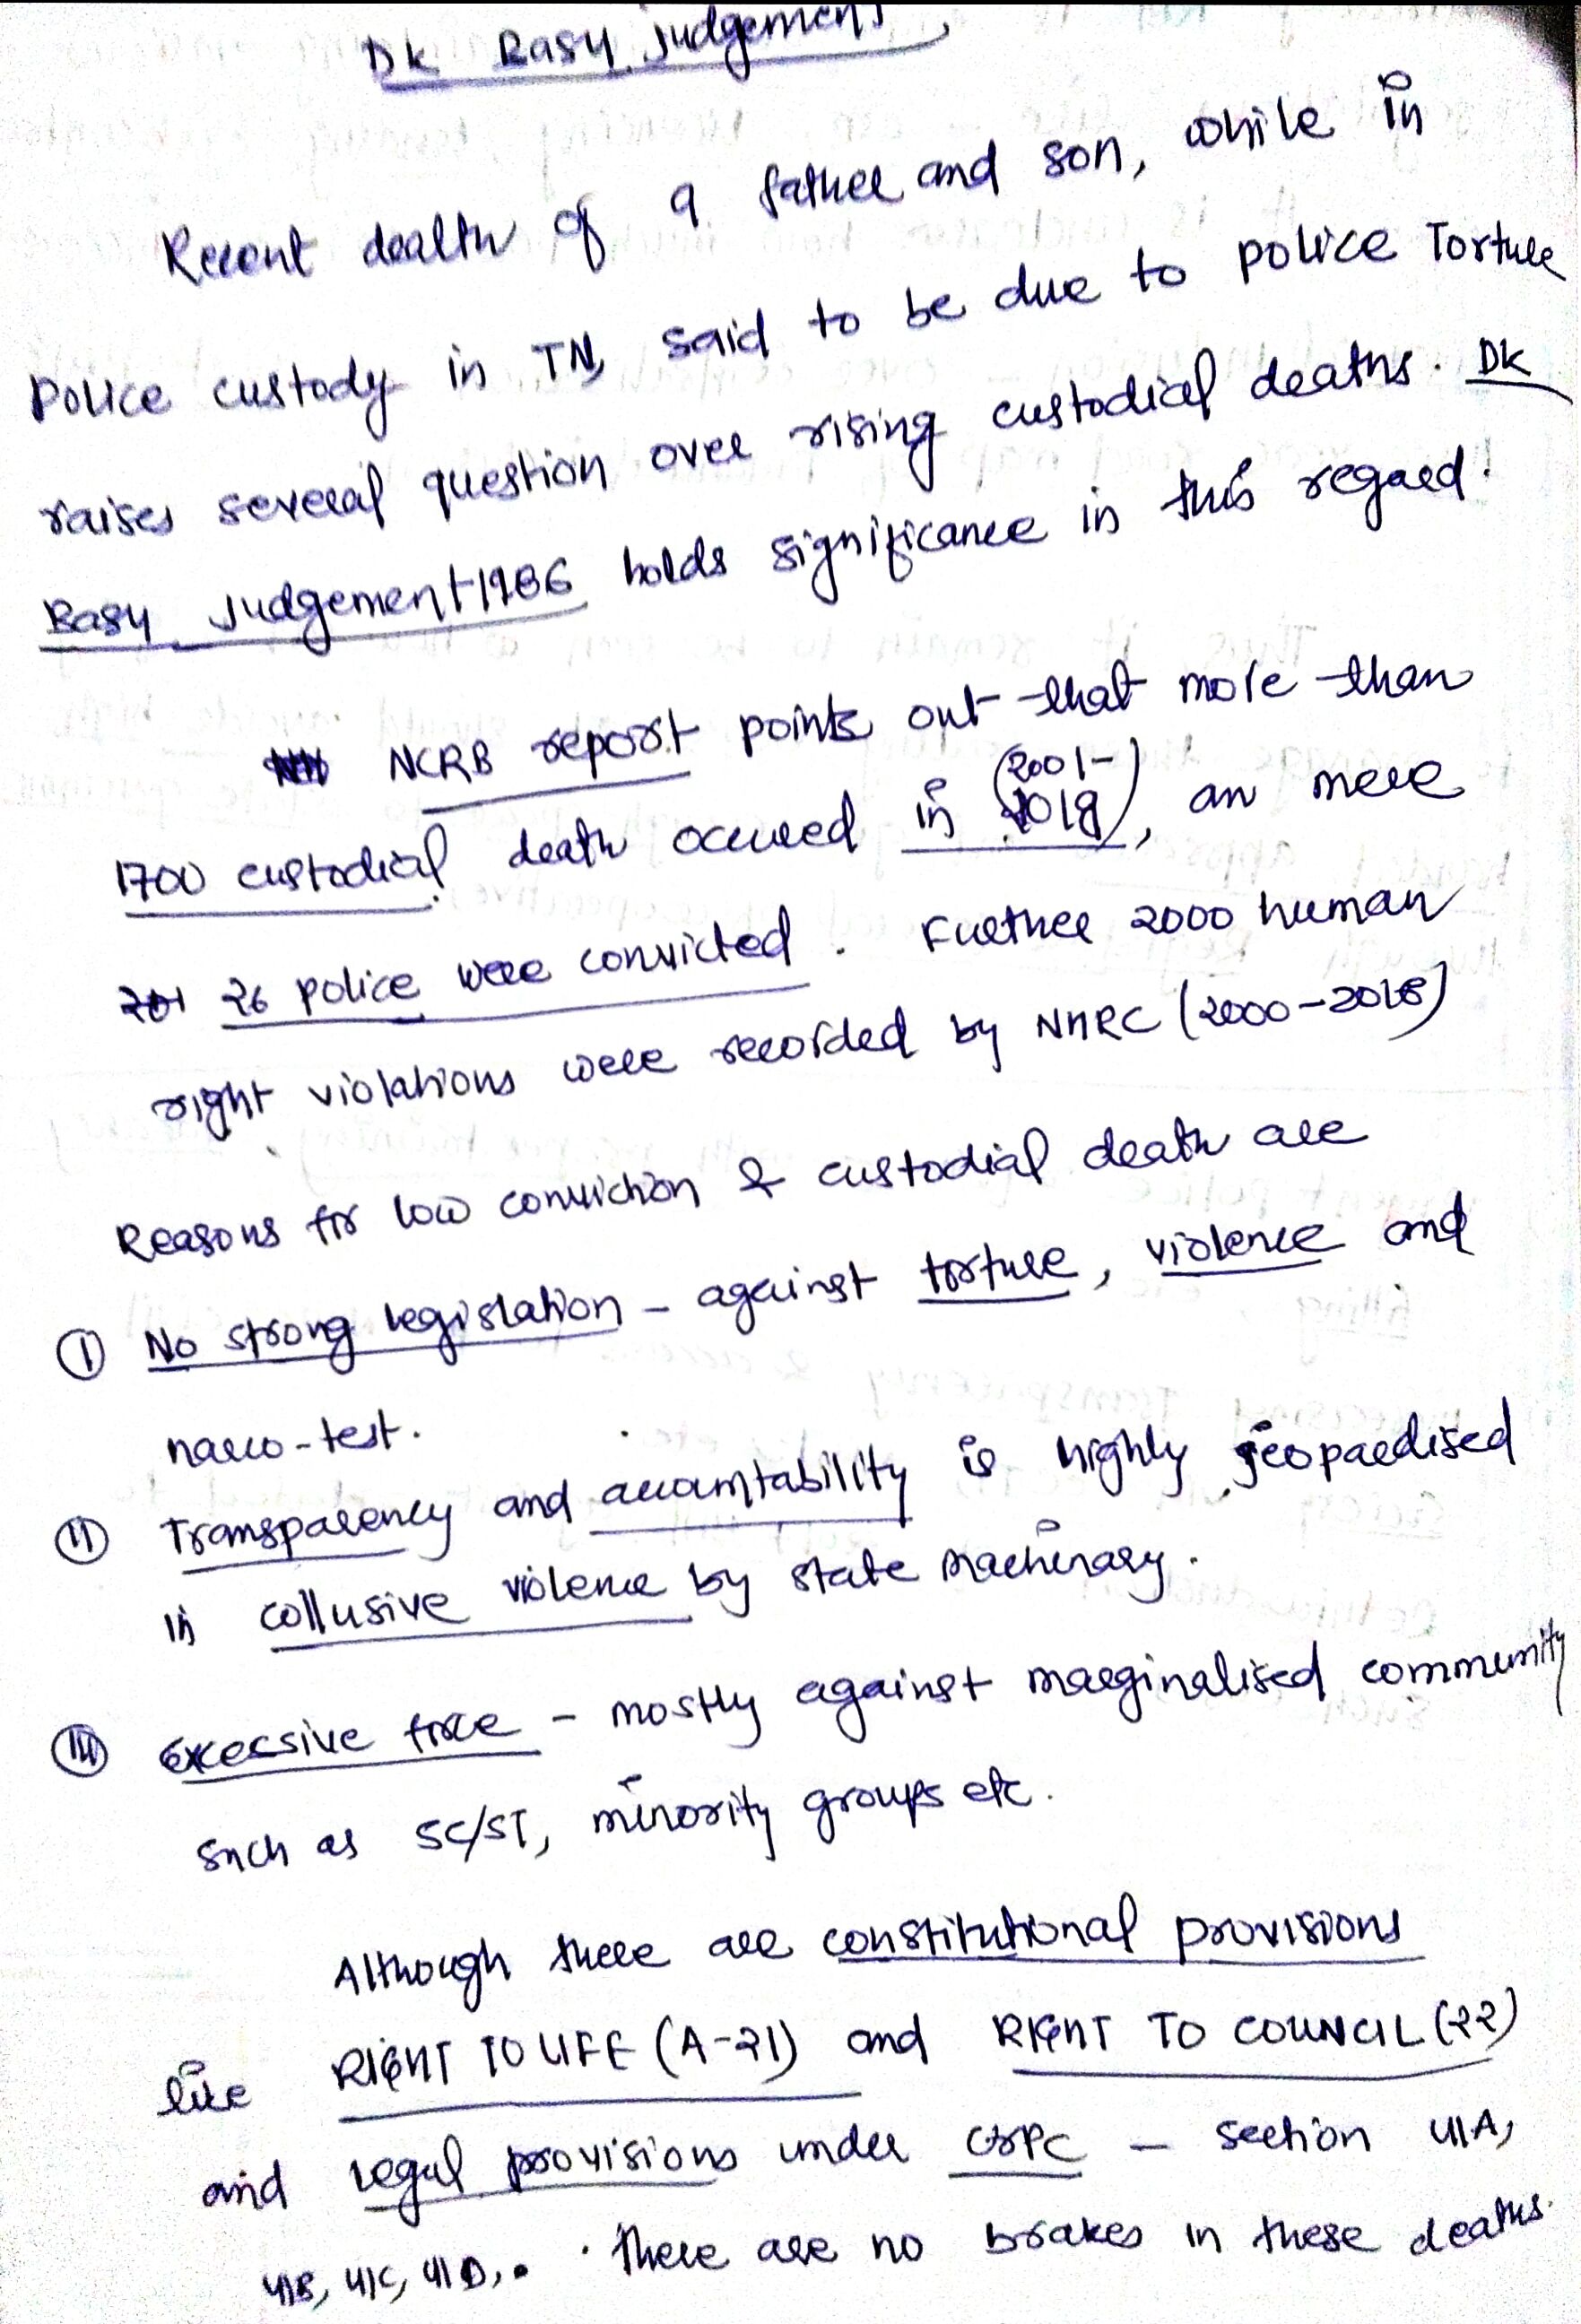 DK Basu Judgement
Recent death of a father and son, while in
police custody in TN, said to be due to police Torture
raises several question over rising custodial deaths. DK
Basu Judgement 1986 holds significance in this regard.
NCRB report points out that more than
1700 custodial death occured in (2001-
2018), an mere
26 police were convicted. Further 2000 human
right violations were recorded by NHRC (2000-2018)
Reasons for low conviction & custodial death are
(I) No strong legislation - against torture, violence and
narco-test.
(II) Transparency and accountability is highly jeopardised
in collusive violence by state machinary.
(III) Excessive force - mostly against marginalised community
such as SC/ST, minority groups etc.
Although there are constitutional provisions
like RIGHT TO LIFE (A-21) and RIGHT TO COUNCIL (22)
and legal provisions under CrPC - section 41A,
41B, 41C, 41D,. There are no brakes in these deaths.